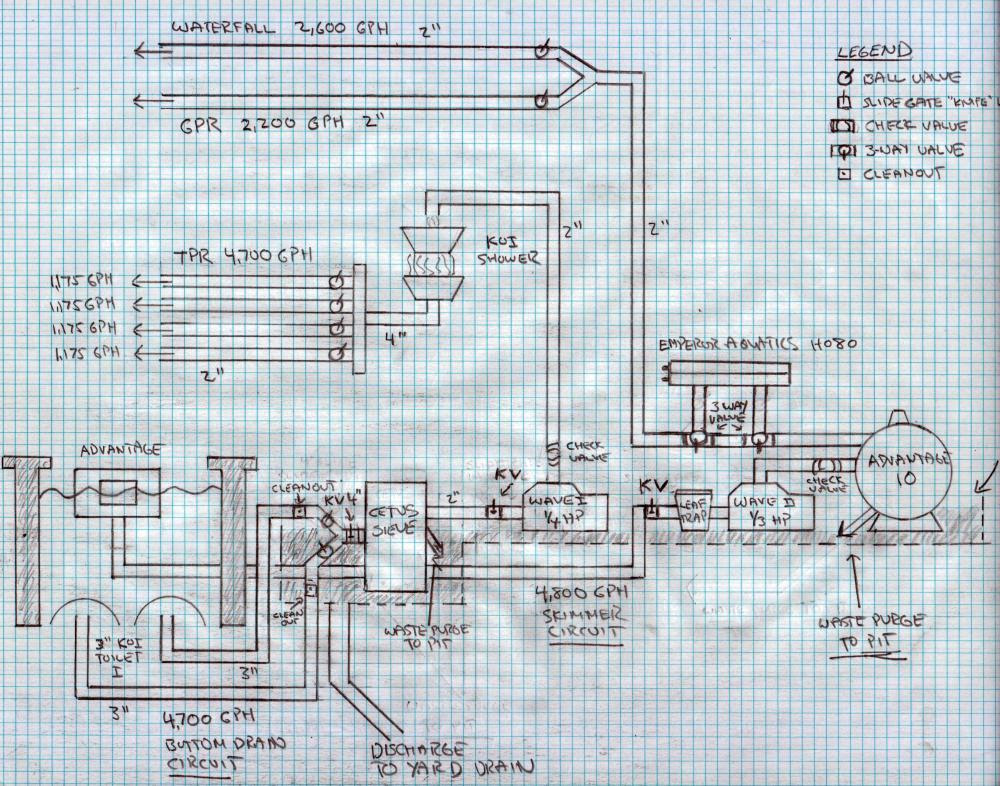 WATERFALL 2,600 GPH 2"
GPR 2,200 GPH 2"
LEGEND
BALL VALVE
SLIDE GATE "KNIFE"
CHECK VALVE
3-WAY VALVE
CLEANOUT
2"
2"
KOI
SHOWER
TPR 4,700 GPH
1,175 GPH
1,175 GPH
1,175 GPH
1,175 GPH
2"
4"
EMPEROR AQUATICS HO80
3 WAY
VALVE
ADVANTAGE
CLEANOUT
KV 4"
CETUS
SIEVE
2"
KV
CHECK
VALVE
WAVE I
1/4 HP
KV
LEAF
TRAP
WAVE II
1/3 HP
CHECK
VALVE
ADVANTAGE
10
CLEAN
OUT
WASTE PURGE
TO PIT
4,800 GPH
SKIMMER
CIRCUIT
WASTE PURGE
TO PIT
3" KOI
TOILET
I
3"
3"
4,700 GPH
BOTTOM DRAIN
CIRCUIT
DISCHARGE
TO YARD DRAIN